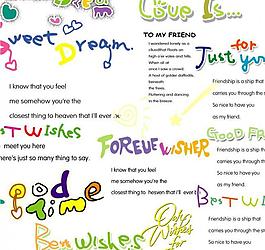 Love Is...
Sweet Dream.
TO MY FRIEND
I wandered lonely as a
cloudthat floats on
high o'er vales and hills.
When all at
once I saw a crowd,
A host of golden daffodils,
beneath
the trees,
fluttering and dancing
in the breeze.
Just for
You
I know that you feel
me somehow you're the
closest thing to heaven that I'll ever
Friendship is a ship that
carries you through the
So nice to have you
as my friend.
BEST WISHES
meet you here
here's just so many thing to say.
FOREVER WISHER
GOOD
Friendship is a ship that
carries you through the st
So nice to have you
as my friend.
I know that you feel
me somehow you're the
closest thing to heaven that I'll ever
good
time
BEST WI
Friendship is a ship that
carries you through
So nice to have you
as my friend.
Best Wishes
Only
Wishes
for